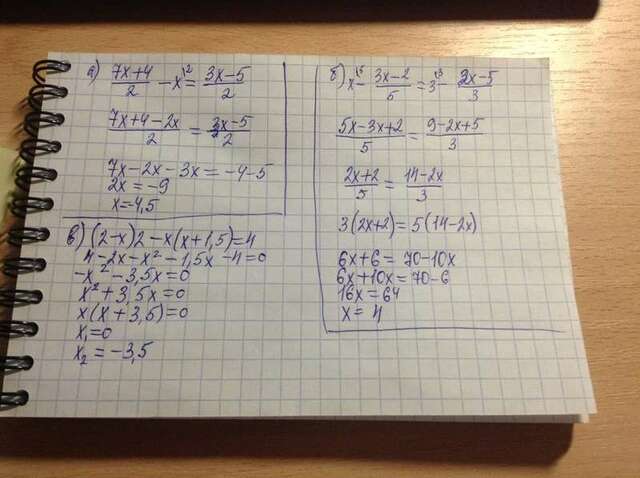 а) (7x+4)/2 - x\2 = (3x-5)/2
(7x+4-2x)/2 = (3x-5)/2
7x-2x-3x = -4-5
2x = -9
x=-4,5
б) x\5 - (3x-2)/5 = 3\3 - (2x-5)/3
(5x-3x+2)/5 = (9-2x+5)/3
(2x+2)/5 = (14-2x)/3
3(2x+2)=5(14-2x)
6x+6 = 70-10x
6x+10x=70-6
16x=64
x= 4
в) (2-x)2-x(x+1,5)=4
4-2x-x²-1,5x-4=0
-x²-3,5x=0
x²+3,5x=0
x(x+3,5)=0
x₁=0
x₂=-3,5